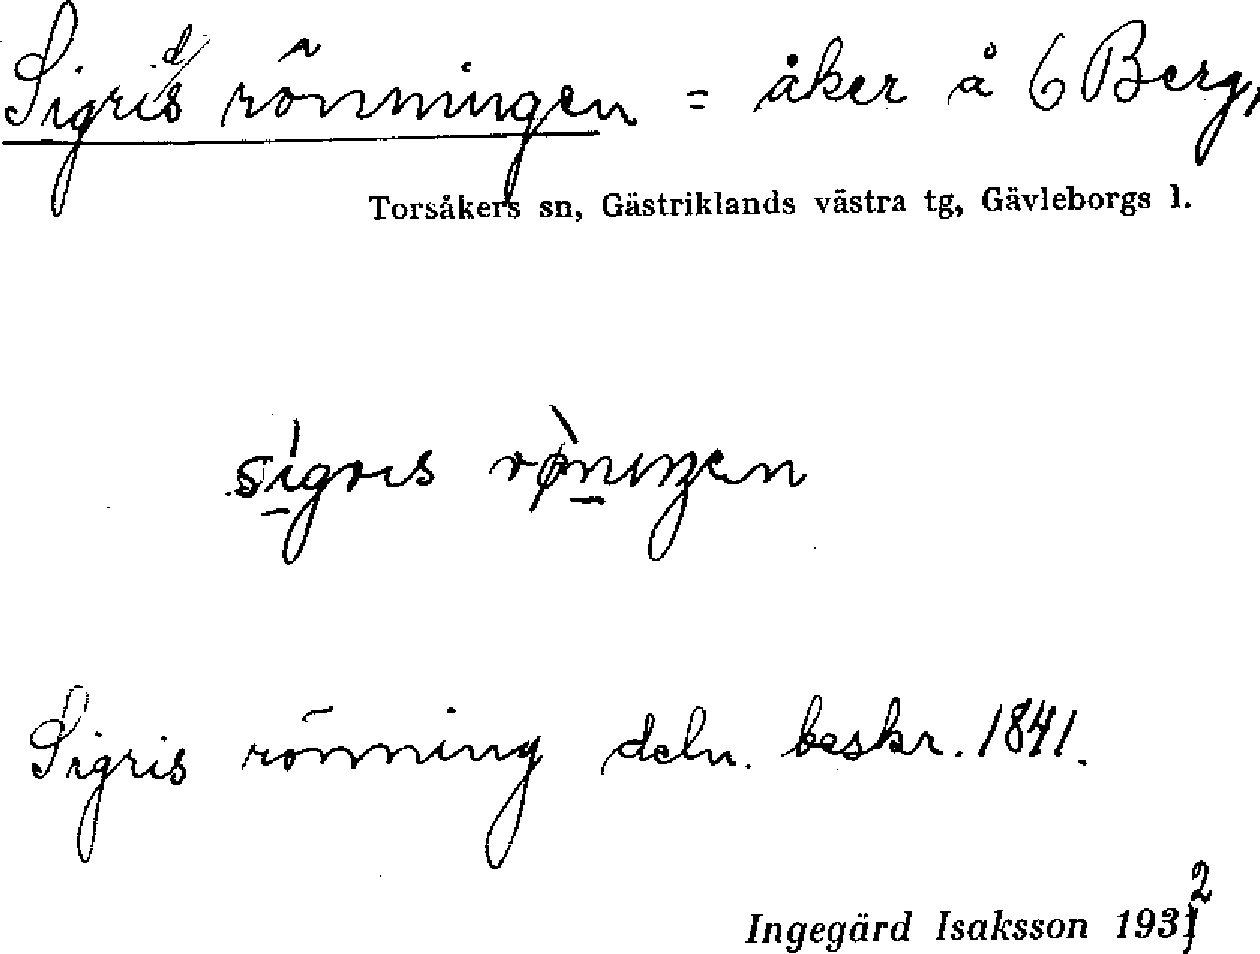 Sigrids rönningen = åker å 6 Berg,
Torsåkers sn, Gästriklands västra tg, Gävleborgs l.
sigris rø̀niŋen
Sigris rönning deln. beskr. 1841.
Ingegärd Isaksson 1932